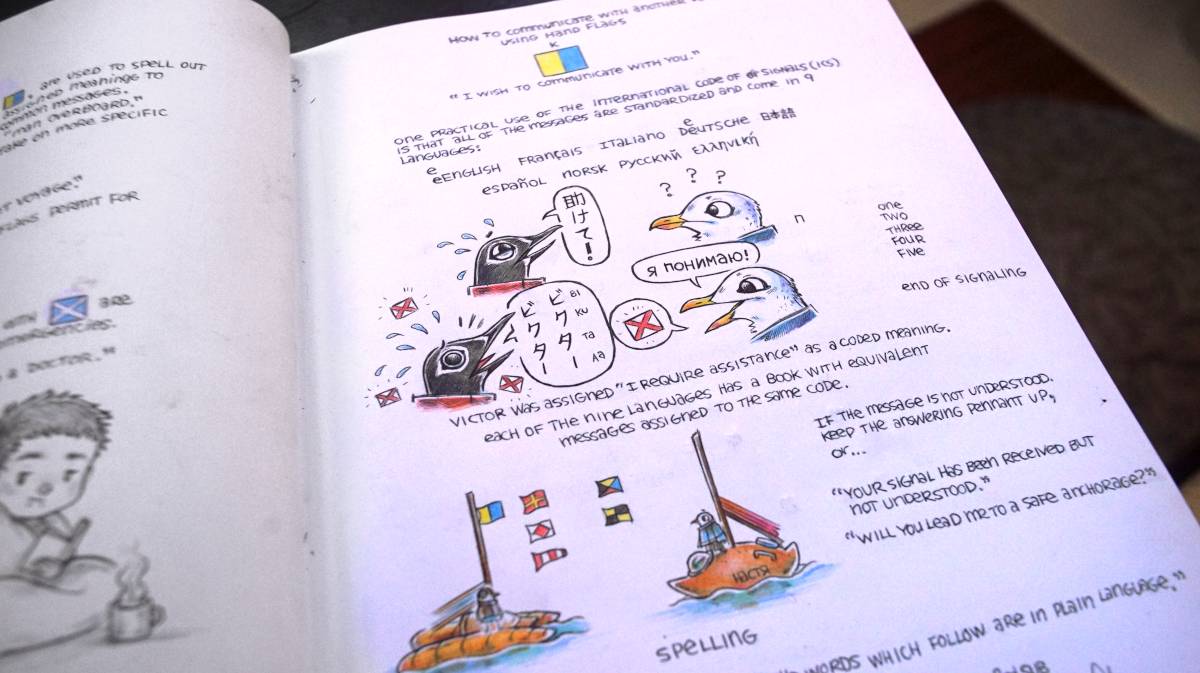 , are used to spell out
assigned meanings to
common messages.
"man overboard."
take on more specific
voyage."
permit for
with are
emergencies.
a doctor."
How to communicate with another
using hand flags
K
"I wish to communicate with you."
One practical use of the International Code of Signals (ICS)
is that all of the messages are standardized and come in 9
languages:
e e
eEnglish Français Italiano Deutsche 日本語
español norsk русский ελληνική
助けて!
? ? ?
n
one
two
three
four
five
Я понимаю!
end of signaling
ビクター
ビクター
Bi
Ku
Ta
Aa
Victor was assigned "I require assistance" as a coded meaning.
each of the nine languages has a book with equivalent
messages assigned to the same code.
If the message is not understood,
keep the answering pennant up,
or...
"Your signal has been received but
not understood."
"Will you lead me to a safe anchorage?"
Настя
spelling
words which follow are in plain language."